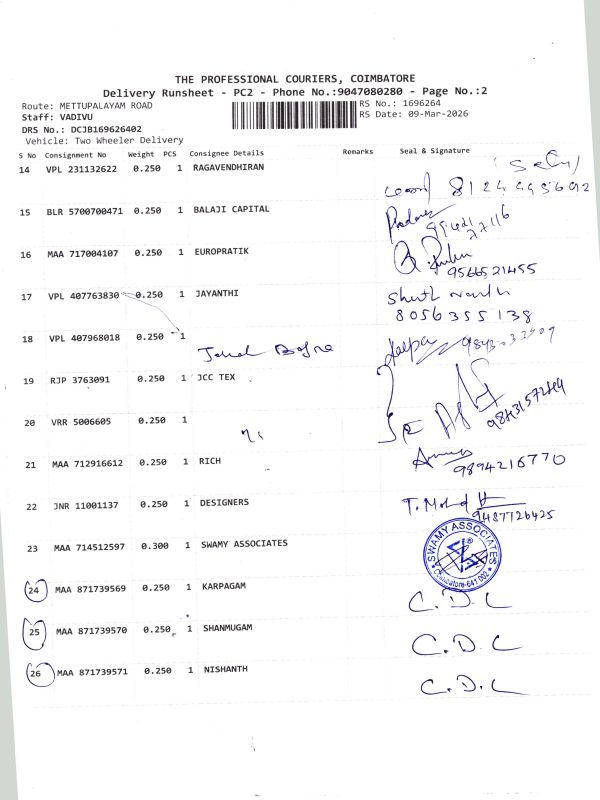 THE PROFESSIONAL COURIERS, COIMBATORE
Delivery Runsheet - PC2 - Phone No.:9047080280 - Page No.:2
Route: METTUPALAYAM ROAD
RS No.: 1696264
Staff: VADIVU
RS Date: 09-Mar-2026
DRS No.: DCJB169626402
Vehicle: Two Wheeler Delivery
S No Consignment No Weight PCS Consignee Details Remarks Seal & Signature
14 VPL 231132622 0.250 1 RAGAVENDHIRAN
15 BLR 5700700471 0.250 1 BALAJI CAPITAL
16 MAA 717004107 0.250 1 EUROPRATIK
9566521455
17 VPL 407763830 0.250 1 JAYANTHI
8056355138
18 VPL 407968018 0.250 1
19 RJP 3763091 0.250 1 JCC TEX
20 VRR 5006605 0.250 1
21 MAA 712916612 0.250 1 RICH
9894216770
22 JNR 11001137 0.250 1 DESIGNERS
T. Mohd
9487726425
23 MAA 714512597 0.300 1 SWAMY ASSOCIATES
SWAMY ASSOCIATES
Coimbatore-641 002
24 MAA 871739569 0.250 1 KARPAGAM
C.D.C
25 MAA 871739570 0.250 1 SHANMUGAM
C.D.C
26 MAA 871739571 0.250 1 NISHANTH
C.D.C